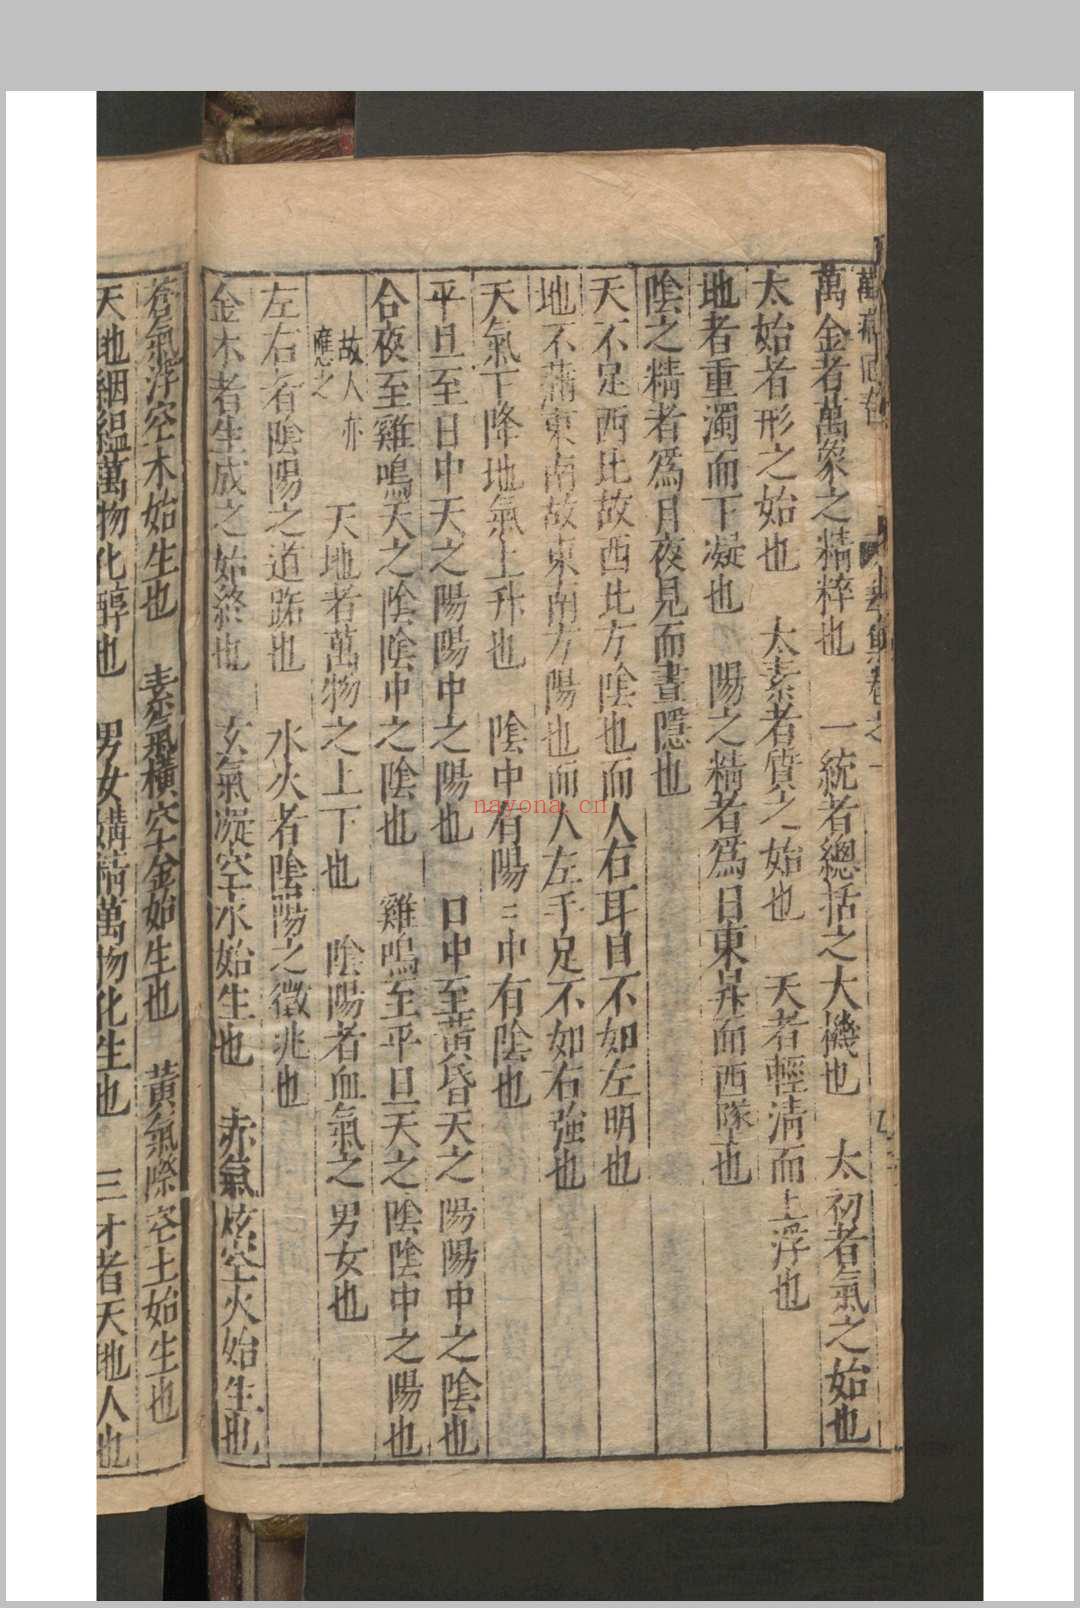 萬病回春
卷之一
萬金者萬象之精粹也　一統者總括之大機也　太初者氣之始也
太始者形之始也　太素者質之始也　天者輕清而上浮也
地者重濁而下凝也　陽之精者為日東昇而西墜也
陰之精者為月夜見而晝隱也
天不足西北故西北方陰也而人右耳目不如左明也
地不滿東南故東南方陽也而人左手足不如右強也
天氣下降地氣上升也　陰中有陽〻中有陰也
平旦至日中天之陽陽中之陽也　日中至黃昏天之陽陽中之陰也
合夜至雞鳴天之陰陰中之陰也　雞鳴至平旦天之陰陰中之陽也
故人亦應之　天地者萬物之上下也　陰陽者血氣之男女也
左右者陰陽之道路也　水火者陰陽之徵兆也
金木者生成之始終也　玄氣凝空水始生也　赤氣炫空火始生也
蒼氣浮空木始生也　素氣橫空金始生也　黃氣際空土始生也
天地絪縕萬物化醇也　男女媾精萬物化生也　三才者天地人也
nayona.cn